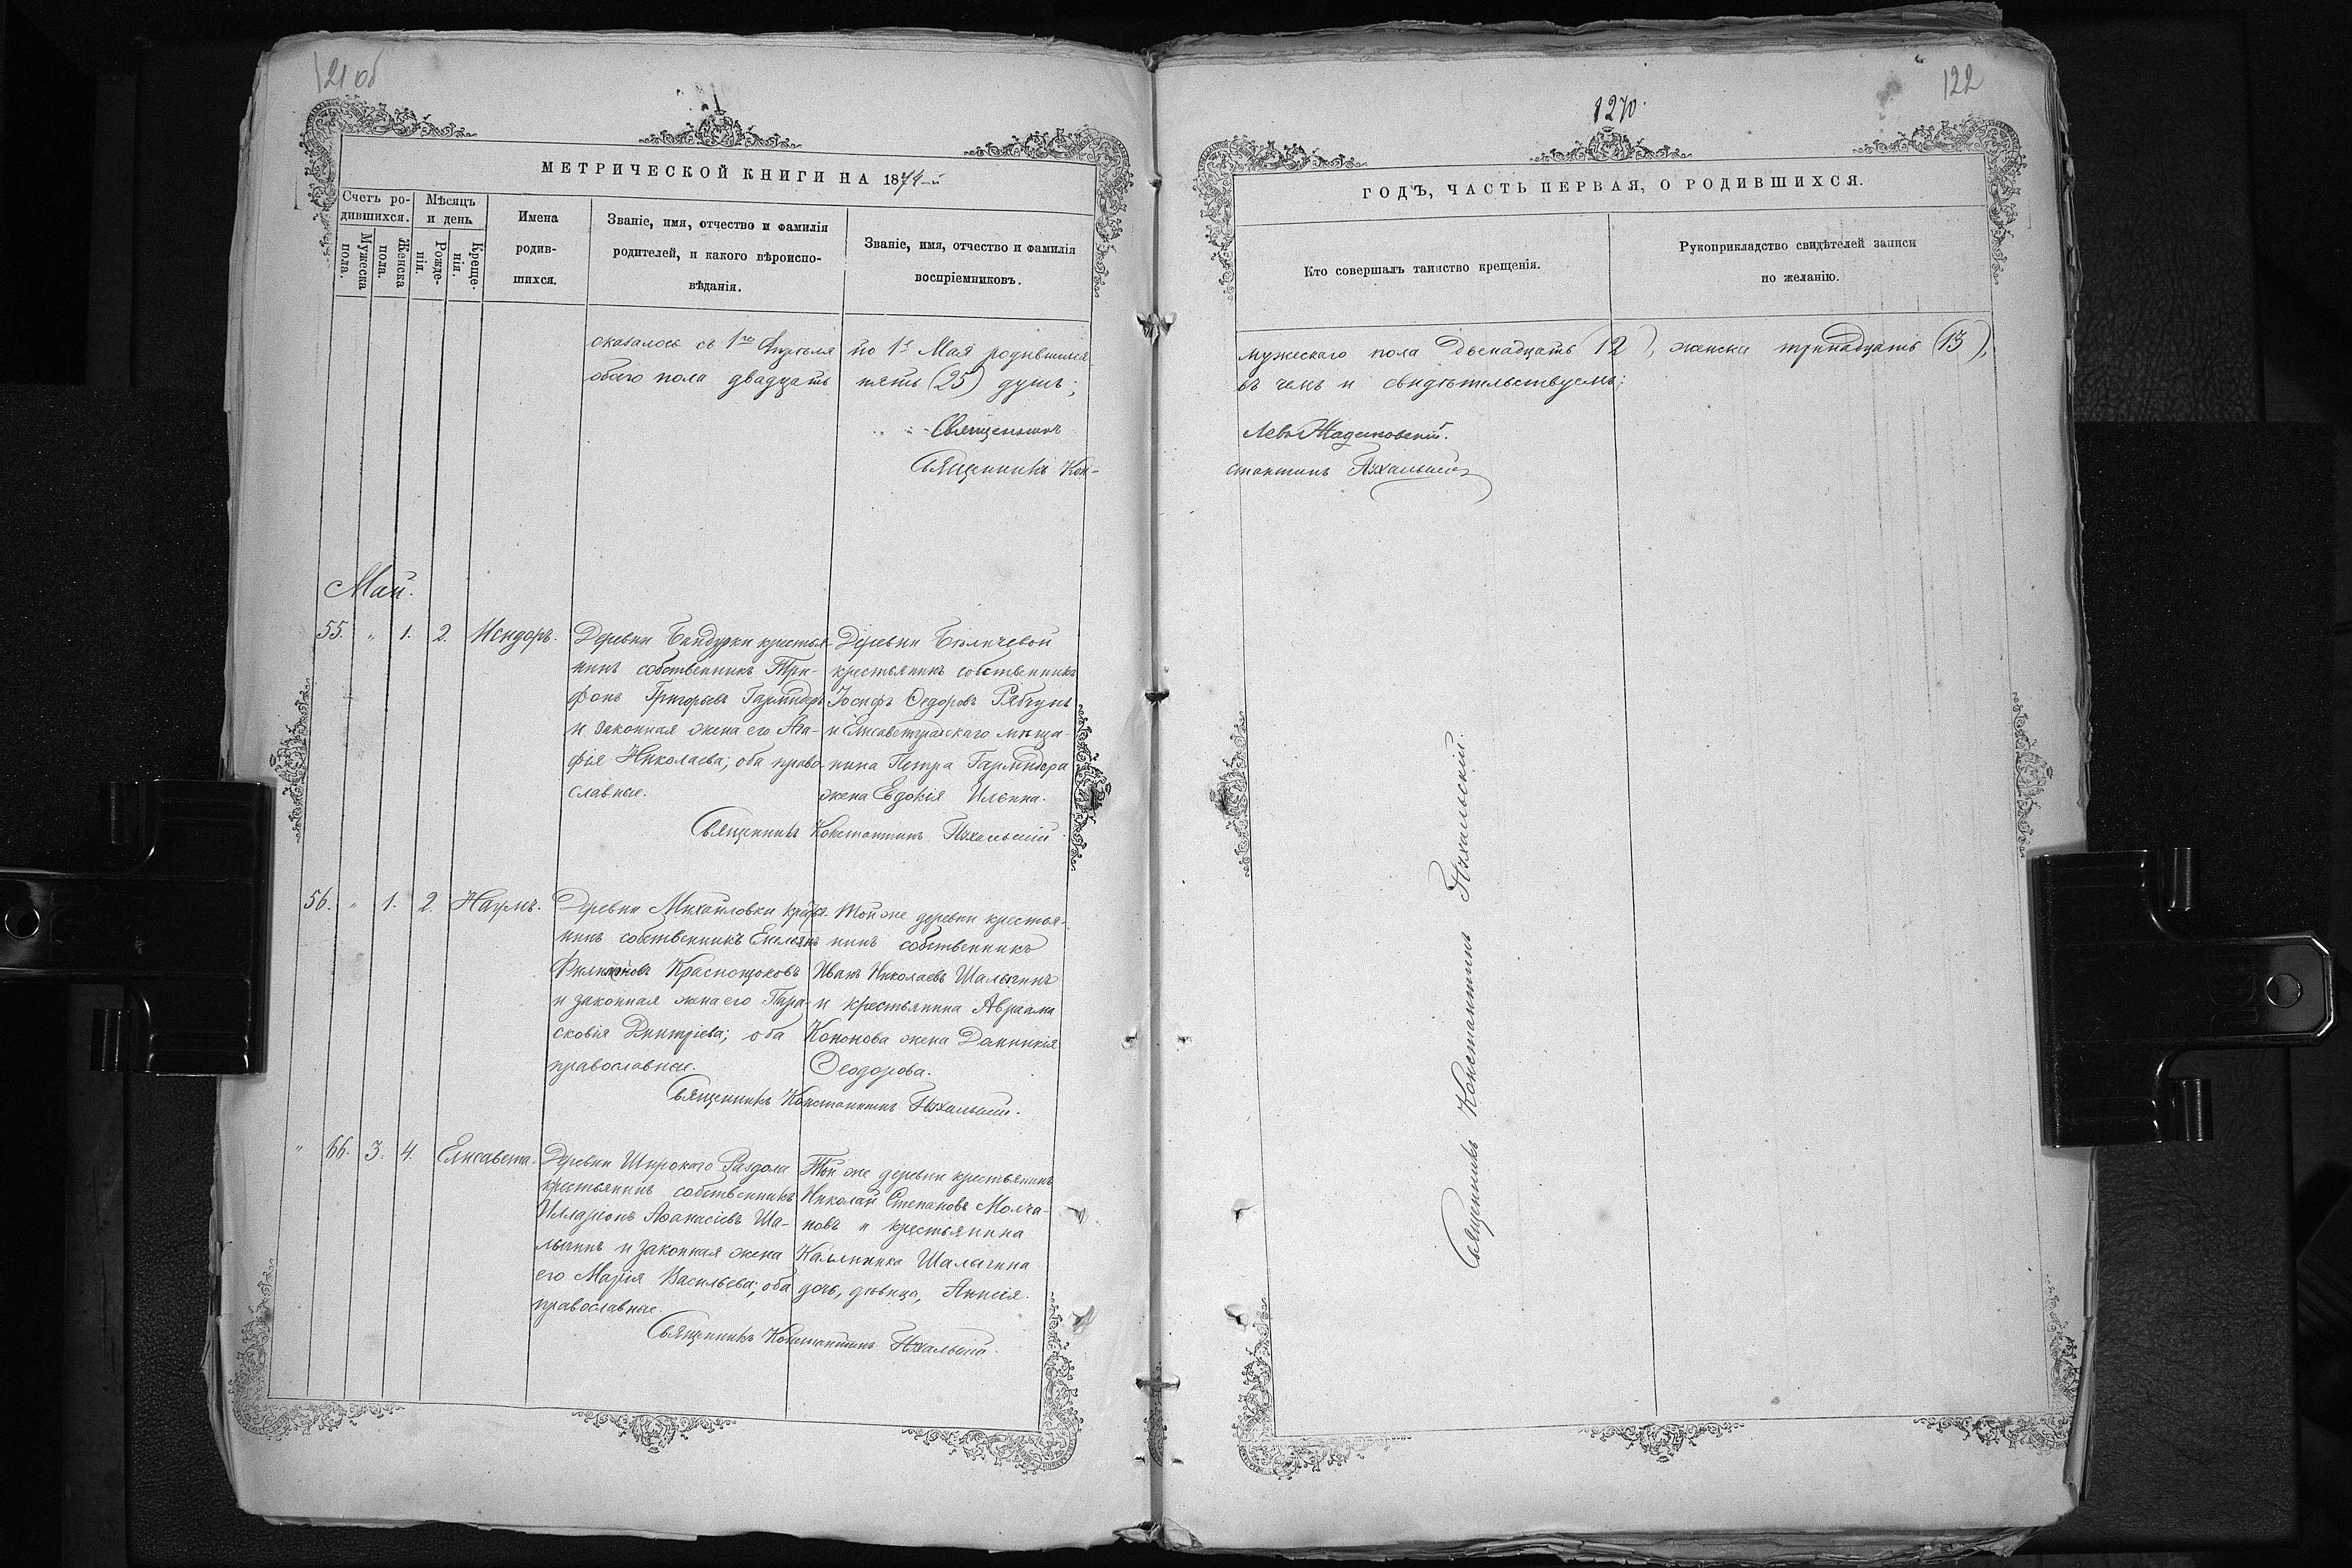 121 об
МЕТРИЧЕСКОЙ КНИГИ НА 1874-й
Счетъ родившихся.
Мужеска пола.
Женска пола.
Мѣсяцъ и день
Рожденія.
Крещенія.
Имена родившихся.
Званіе, имя, отчество и фамилія
родителей, и какого вѣроиспо-
вѣданія.
Званіе, имя, отчество и фамилія
воспріемниковъ.
оказалось съ 1го Апрѣля по 1е Мая родившихся
обоего пола двадцать пять (25) душъ;
Священникъ
Священникъ Кон-
Май.
55. " 1. 2. Исидоръ.
Деревни Бандурки крестья-
нинъ собственникъ Три-
фонъ Григорьевъ
и законная жена его Ага-
фія Николаева; оба право-
славные.
Деревни
крестьянинъ собственникъ
Іосифъ Ѳедоровъ Рябчунъ
и Елисаветградскаго мѣща-
нина Петра
жена Евдокія
Священникъ Константинъ
56. " 1. 2. Наумъ.
Деревни Михайловки крестья-
нинъ собственникъ Емельянъ
Краснощоковъ
и законная жена его Пара-
сковія Дмитріева; оба
православные.
Той же деревни крестья-
нинъ собственникъ
Иванъ Николаевъ Шалыгинъ
и крестьянина Авраама
Кононова жена Домникія
Ѳеодорова.
Священникъ Константинъ
" 66. 3. 4. Елисавета.
Деревни Широкаго Раздола
крестьянинъ собственникъ
Илларіонъ Аѳанасіевъ Ша-
лыгинъ и законная жена
его Марія Васильева; оба
православные.
Той же деревни крестьянинъ
Николай Степановъ Молча-
новъ и крестьянина
Каллиника Шалыгина
дочь, дѣвица, Анисія.
Священникъ Константинъ
122
1270.
ГОДЪ, ЧАСТЬ ПЕРВАЯ, О РОДИВШИХСЯ.
Кто совершалъ таинство крещенія.
Рукоприкладство свидѣтелей записи
по желанію.
мужескаго пола двенадцать (12), женска тринадцать (13),
въ чемъ и свидѣтельствуемъ;
Левъ
стантинъ
Священникъ Константинъ